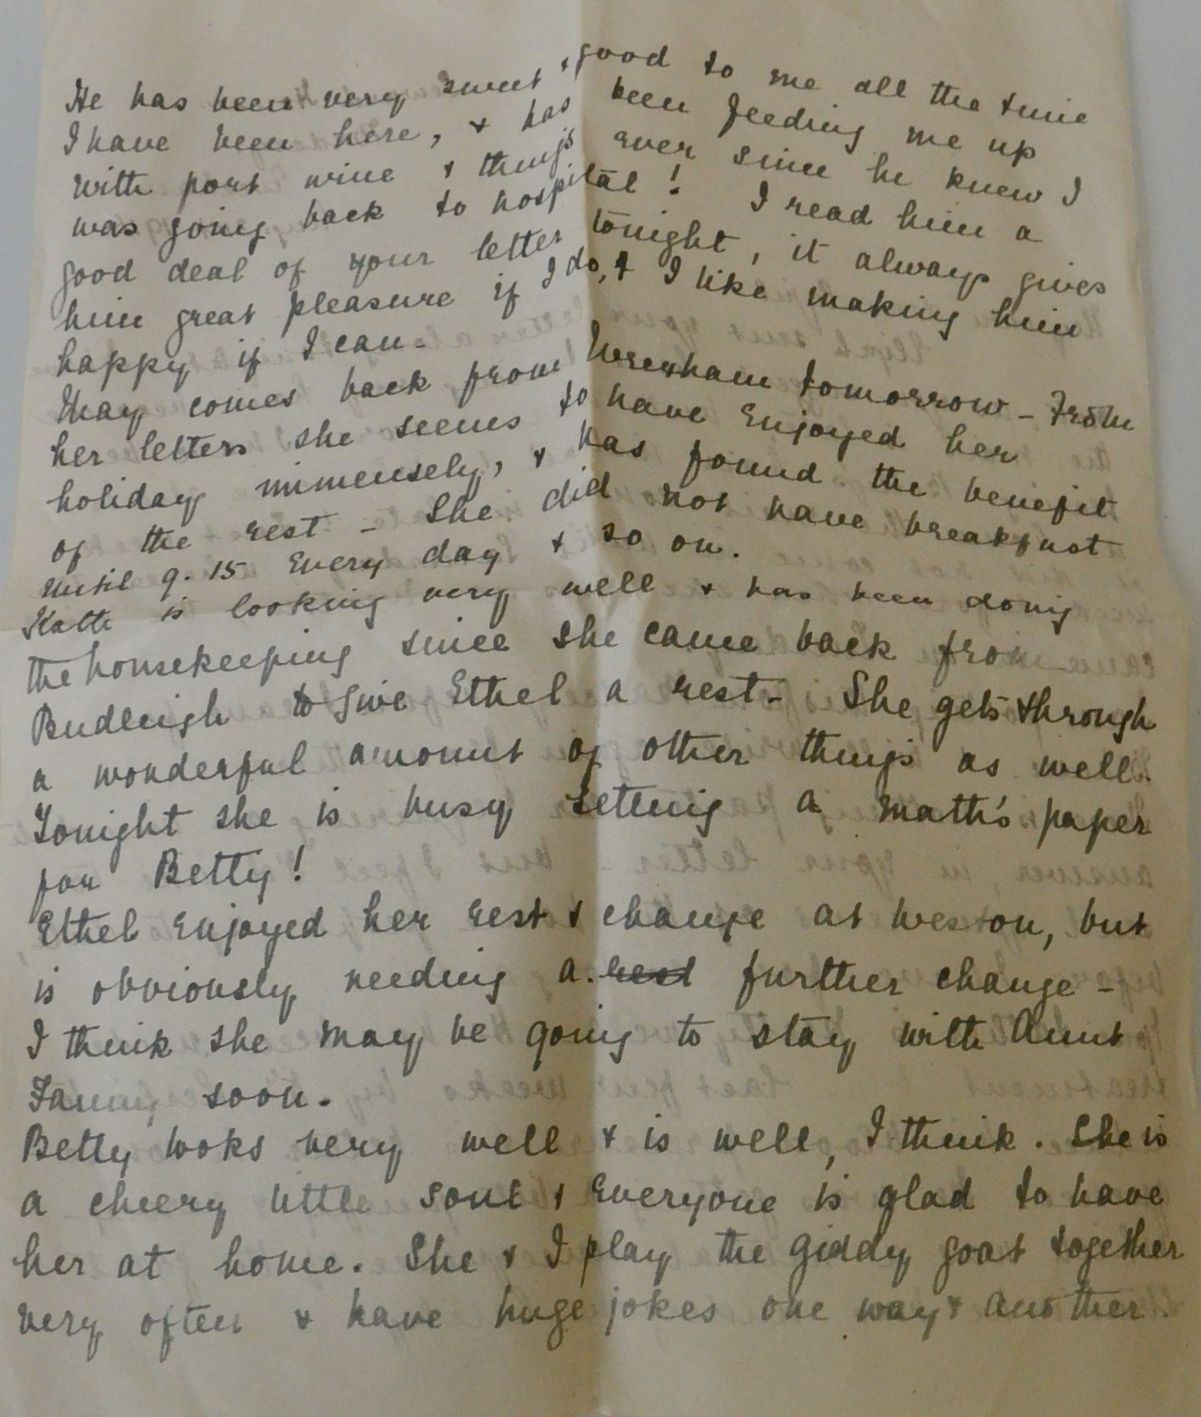 He has been very sweet & good to me all the time
I have been here, & has been feeding me up
with port wine & things ever since he knew I
was going back to hospital! I read him a
good deal of your letter tonight, it always gives
him great pleasure if I do, & I like making him
happy if I can.
May comes back from Wrexham tomorrow - From
her letters she seems to have enjoyed her
holiday immensely, & has found the benefit
of the rest - She did not have breakfast
until 9.15 every day & so on.
Kath is looking very well & has been doing
the housekeeping since she came back from
Budleigh to give Ethel a rest - She gets through
a wonderful amount of other things as well.
Tonight she is busy setting a math's paper
for Betty!
Ethel enjoyed her rest & change at Weston, but
is obviously needing a rest further change -
I think she may be going to stay with Aunt
Fanny soon.
Betty looks very well & is well, I think. She is
a cheery little soul & everyone is glad to have
her at home. She & I play the giddy goat together
very often & have huge jokes one way & another.